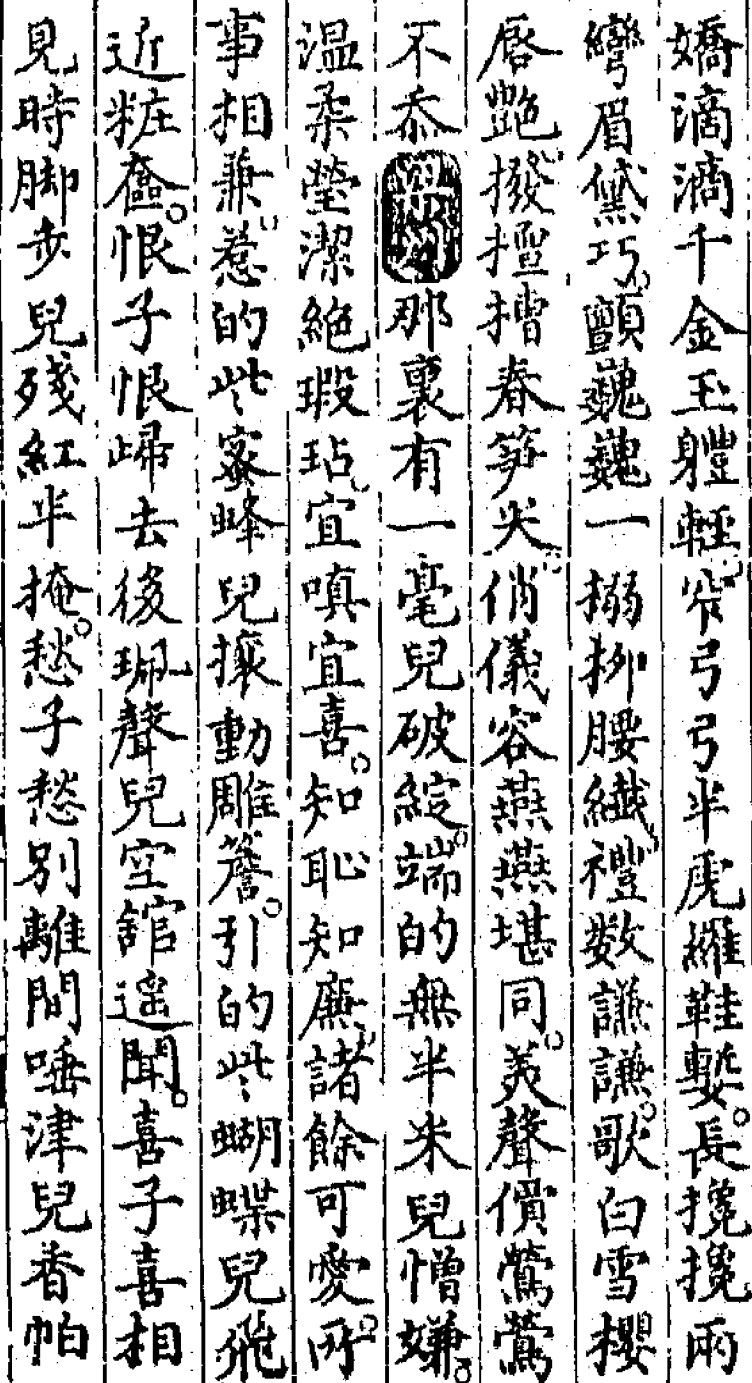 嬌滴滴千金玉軆輕窄弓弓半虎羅鞋㜸長攙攙兩
彎眉黛巧顫巍巍一搦柳腰纎禮數謙謙歌白雪櫻
唇艶撥擅槽春笋尖俏儀容燕燕堪同美聲價鶯鶯
不忝那裏有一毫兒破綻端的無半米兒憎嫌
温柔瑩潔絶瑕玷宜嗔宜喜知恥知廉諸餘可愛所
事相兼惹的些蜜蜂兒攘動雕簷引的些蝴蝶兒飛
近粧奩恨子恨歸去後珮聲兒空館遥聞喜子喜相
見時脚步兒殘紅半掩愁子愁別離間唾津兒香帕